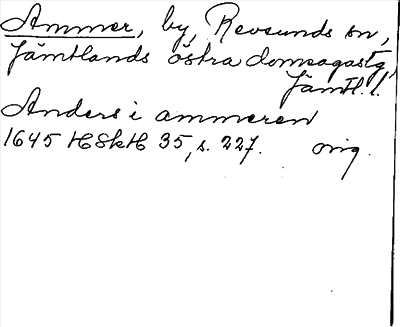 Ammer, by, Revsunds sn,
Jämtlands östra domsagastg,
Jämtl. l.
Anders i ammeren
1645 HSkH 35, s. 227. orig.